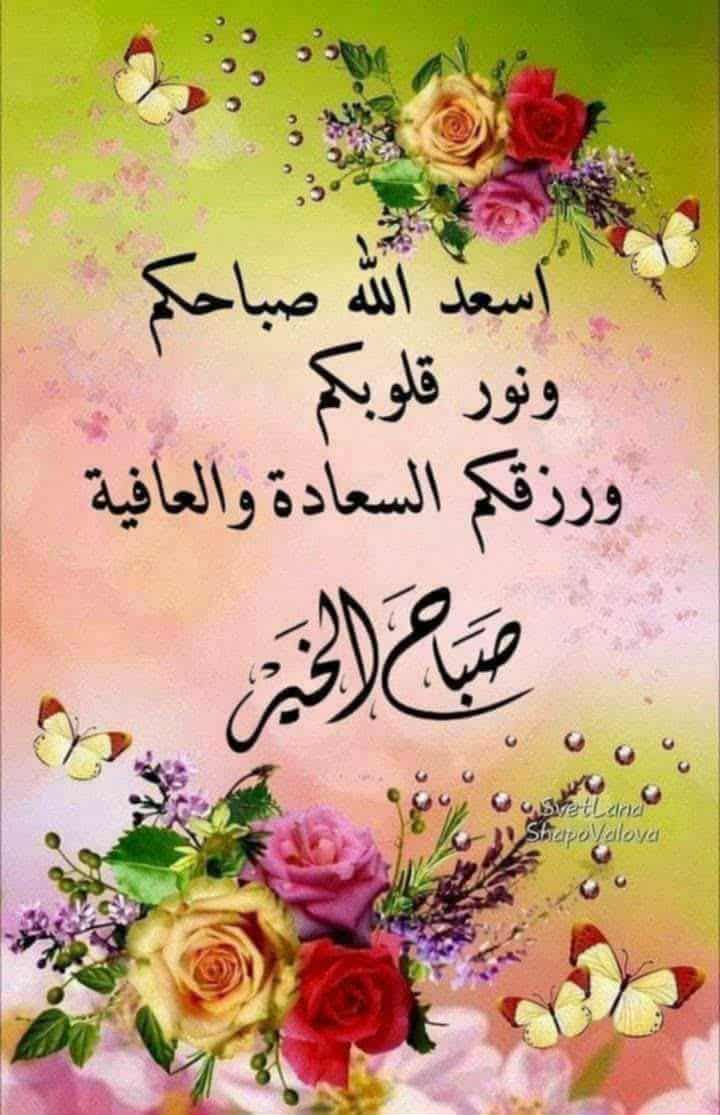 اسعد الله صباحكم
ونور قلوبكم
ورزقكم السعادة والعافية
صَبَاحَ الخَيْر
SvetLana
ShapoValova